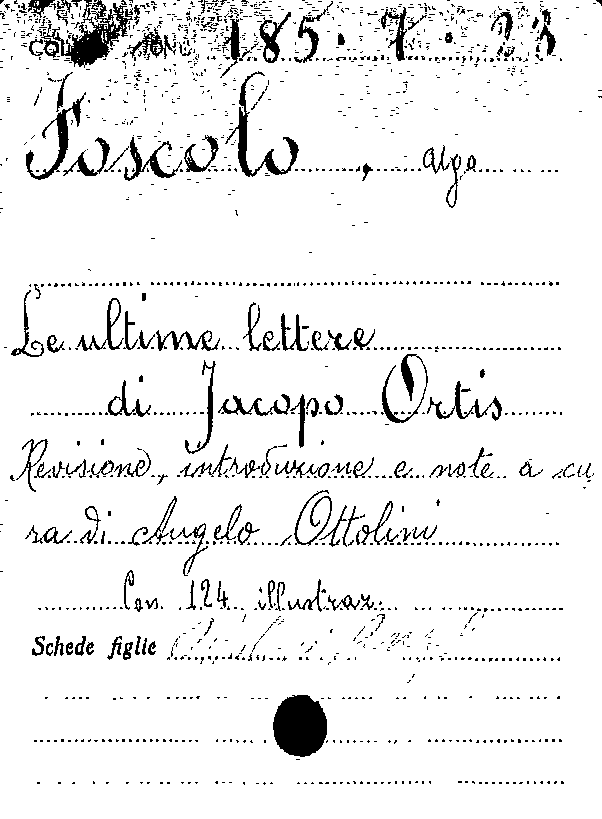 185. 7. 23
Foscolo, Ugo
Le ultime lettere
di Jacopo Ortis
Revisione, introduzione e note a cu
ra di Angelo Ottolini
Con 124 illustraz.
Schede figlie